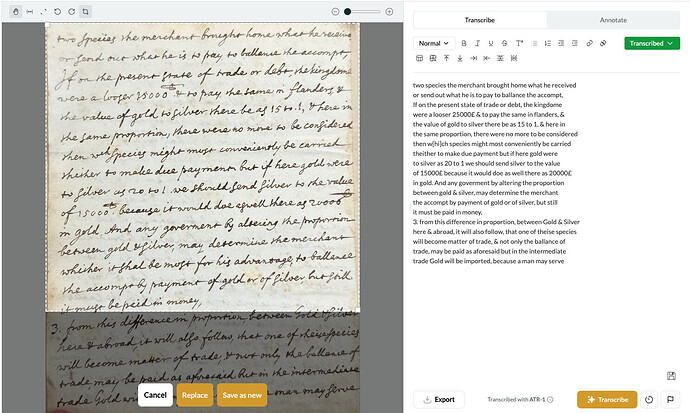 two species the merchant brought home what he receive
or send out what he is to pay to ballance the accompt,
If on the present state of trade or debt, the kingdome
were a looser 25000£ & to pay the same in flanders, &
the value of gold to silver there be as 15 to 1, & here in
the same proportion, there were no more to be considered
then wch species might most conveniently be carried
theither to make due payment but if here gold were
to silver as 20 to 1. we should send silver to the value
of 15000£ because it would doe aswell there as 20000£
in gold. And any goverment by altering the proportion
between gold & silver, may determine the merchant
whither it shal be most for his advantage, to ballance
the accompt by payment of gold or of silver, but still
it must be paid in money,
3. from this difference in proportion between Gold & Silver
here & abroad, it will also follow, that one of theise species
will become matter of trade, & not only the ballance of
trade, may be paid as aforesaid but in the intermediate
trade Gold man may serve
Cancel
Replace
Save as new
Transcribe
Annotate
Normal
B I U S T
Transcribed
two species the merchant brought home what he received
or send out what he is to pay to ballance the accompt,
If on the present state of trade or debt, the kingdome
were a looser 25000£ & to pay the same in flanders, &
the value of gold to silver there be as 15 to 1, & here in
the same proportion, there were no more to be considered
then w[hi]ch species might most conveniently be carried
theither to make due payment but if here gold were
to silver as 20 to 1 we should send silver to the value
of 15000£ because it would doe as well there as 20000£
in gold. And any goverment by altering the proportion
between gold & silver, may determine the merchant
the accompt by payment of gold or of silver, but still
it must be paid in money,
3. from this difference in proportion, between Gold & Silver
here & abroad, it will also follow, that one of theise species
will become matter of trade, & not only the ballance of
trade, may be paid as aforesaid but in the intermediate
trade Gold will be imported, because a man may serve
Export
Transcribed with ATR-1
Transcribe